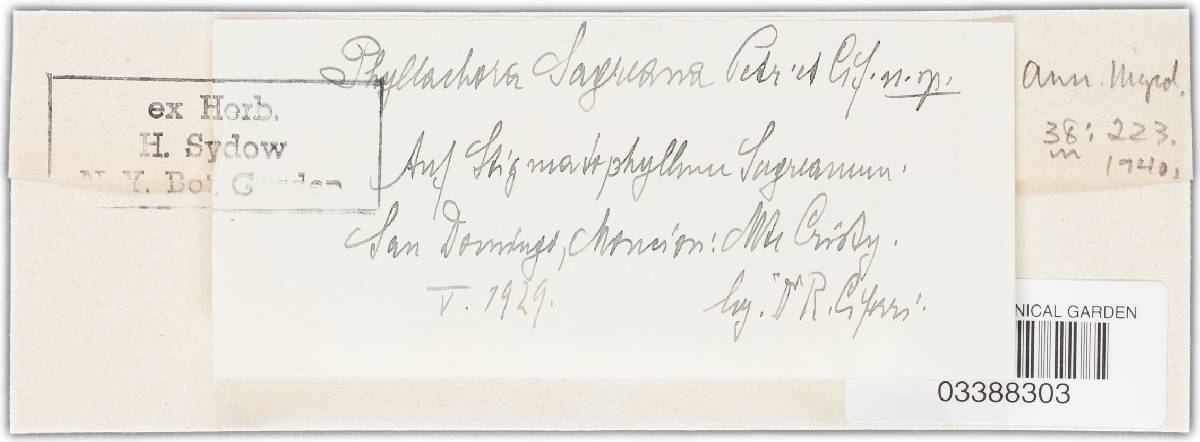 Phyllachora Sagreana Petr. et Cif. n. sp.
Auf Stigmatophyllum Sagreanum.
San Domingo, Moncion: Mte Cristy.
V. 1929. leg. Dr R. Ciferri.
ex Herb.
H. Sydow
N. Y. Bot. Garden
Ann. Mycol.
38: 223.
1940.
NICAL GARDEN
03388303